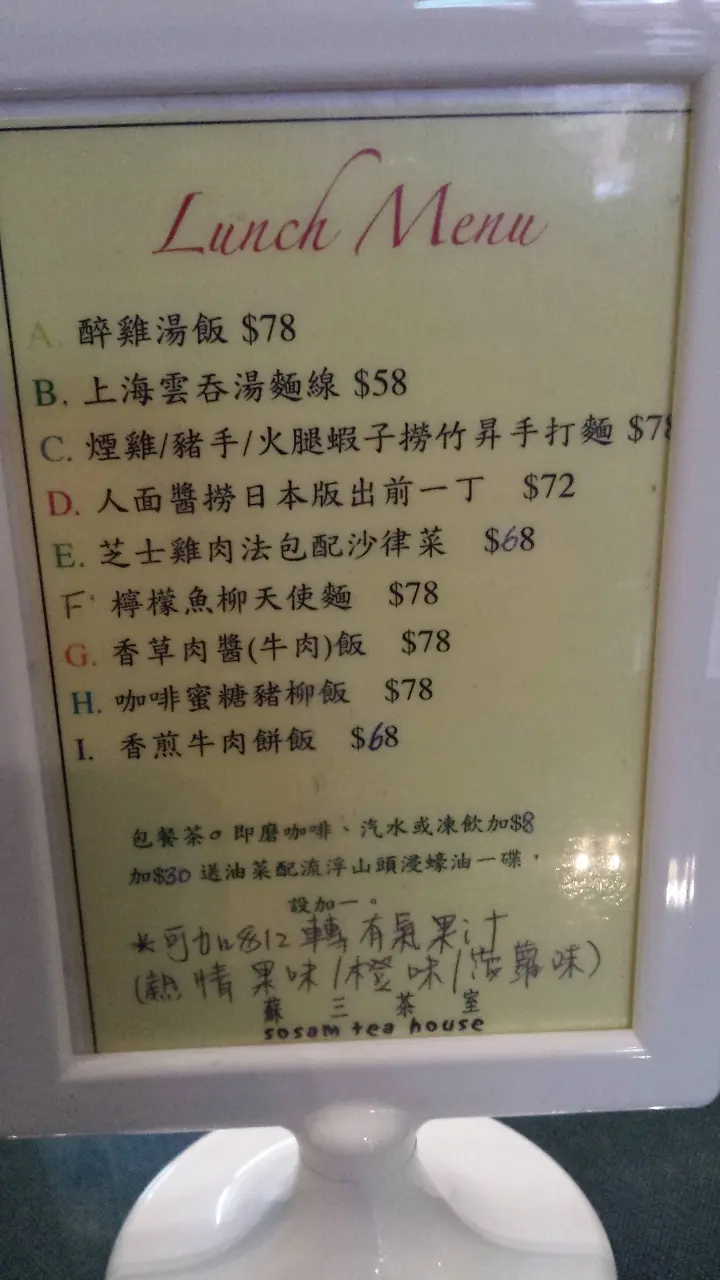 Lunch Menu
A. 醉雞湯飯 $78
B. 上海雲吞湯麵線 $58
C. 煙雞/豬手/火腿蝦子撈竹昇手打麵 $78
D. 人面醬撈日本版出前一丁 $72
E. 芝士雞肉法包配沙律菜 $68
F. 檸檬魚柳天使麵 $78
G. 香草肉醬(牛肉)飯 $78
H. 咖啡蜜糖豬柳飯 $78
I. 香煎牛肉餅飯 $68
包餐茶。即磨咖啡、汽水或凍飲加$8
加$30 送油菜配流浮山頭浸蠔油一碟，
設加一。
*可加$12轉有氣果汁
(熱情果味/橙味/菠蘿味)
蘇三茶室
sosam tea house